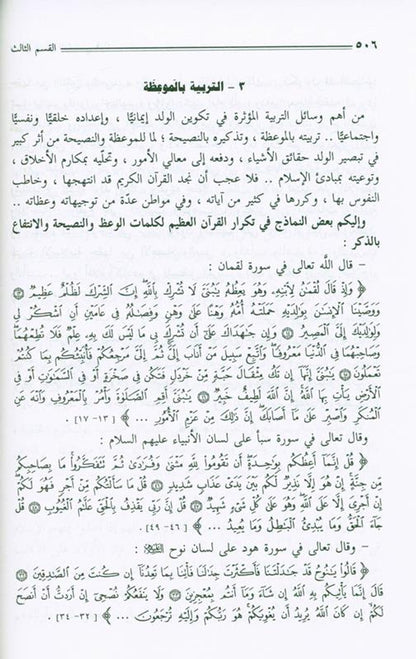 ٥٠٦ القسم الثالث
٣ - التربية بالموعظة
من أهم وسائل التربية المؤثرة في تكوين الولد إيمانيًّا ، وإعداده خلقيًّا ونفسيًّا
واجتماعيًّا .. تربيته بالموعظة ، وتذكيره بالنصيحة ؛ لما للموعظة والنصيحة من أثر كبير
في تبصير الولد حقائق الأشياء ، ودفعه إلى معالي الأمور ، وتحلّيه بمكارم الأخلاق ،
وتوعيته بمبادئ الإسلام .. فلا عجب أن نجد القرآن الكريم قد انتهجها ، وخاطب
النفوس بها ، وكررها في كثير من آياته ، وفي مواطن عدّة من توجيهاته وعظاته ..
وإليكم بعض النماذج في تكرار القرآن العظيم لكلمات الوعظ والنصيحة والانتفاع
بالذكر :
– قال اللَّه تعالى في سورة لقمان :
﴿ وَإِذْ قَالَ لُقْمَٰنُ لِٱبْنِهِۦ وَهُوَ يَعِظُهُۥ يَٰبُنَيَّ لَا تُشْرِكْ بِٱللَّهِ إِنَّ ٱلشِّرْكَ لَظُلْمٌ عَظِيمٌ ۝١٣
وَوَصَّيْنَا ٱلْإِنسَٰنَ بِوَٰلِدَيْهِ حَمَلَتْهُ أُمُّهُۥ وَهْنًا عَلَىٰ وَهْنٍ وَفِصَٰلُهُۥ فِي عَامَيْنِ أَنِ ٱشْكُرْ لِي
وَلِوَٰلِدَيْكَ إِلَيَّ ٱلْمَصِيرُ ۝١٤ وَإِن جَٰهَدَاكَ عَلَىٰٓ أَن تُشْرِكَ بِي مَا لَيْسَ لَكَ بِهِۦ عِلْمٌ فَلَا تُطِعْهُمَا
وَصَاحِبْهُمَا فِي ٱلدُّنْيَا مَعْرُوفًا وَٱتَّبِعْ سَبِيلَ مَنْ أَنَابَ إِلَيَّ ثُمَّ إِلَيَّ مَرْجِعُكُمْ فَأُنَبِّئُكُم بِمَا كُنتُمْ
تَعْمَلُونَ ۝١٥ يَٰبُنَيَّ إِنَّهَآ إِن تَكُ مِثْقَالَ حَبَّةٍ مِّنْ خَرْدَلٍ فَتَكُن فِي صَخْرَةٍ أَوْ فِي ٱلسَّمَٰوَٰتِ أَوْ فِي
ٱلْأَرْضِ يَأْتِ بِهَا ٱللَّهُ إِنَّ ٱللَّهَ لَطِيفٌ خَبِيرٌ ۝١٦ يَٰبُنَيَّ أَقِمِ ٱلصَّلَوٰةَ وَأْمُرْ بِٱلْمَعْرُوفِ وَٱنْهَ عَنِ
ٱلْمُنكَرِ وَٱصْبِرْ عَلَىٰ مَآ أَصَابَكَ إِنَّ ذَٰلِكَ مِنْ عَزْمِ ٱلْأُمُورِ ... ﴾ [ ١٣ - ١٧ ]
وقال تعالى في سورة سبأ على لسان الأنبياء عليهم السلام :
﴿ قُلْ إِنَّمَآ أَعِظُكُم بِوَٰحِدَةٍ أَن تَقُومُواْ لِلَّهِ مَثْنَىٰ وَفُرَٰدَىٰ ثُمَّ تَتَفَكَّرُواْ مَا بِصَاحِبِكُم
مِّن جِنَّةٍ إِنْ هُوَ إِلَّا نَذِيرٌ لَّكُم بَيْنَ يَدَيْ عَذَابٍ شَدِيدٍ ۝٤٦ قُلْ مَا سَأَلْتُكُم مِّنْ أَجْرٍ فَهُوَ لَكُمْ
إِنْ أَجْرِيَ إِلَّا عَلَى ٱللَّهِ وَهُوَ عَلَىٰ كُلِّ شَيْءٍ شَهِيدٌ ۝٤٧ قُلْ إِنَّ رَبِّي يَقْذِفُ بِٱلْحَقِّ عَلَّٰمُ ٱلْغُيُوبِ ۝٤٨ قُلْ
جَآءَ ٱلْحَقُّ وَمَا يُبْدِئُ ٱلْبَٰطِلُ وَمَا يُعِيدُ ... ﴾ [ ٤٦ - ٤٩ ] .
– وقال تعالى في سورة هود على لسان نوح :
﴿ قَالُواْ يَٰنُوحُ قَدْ جَٰدَلْتَنَا فَأَكْثَرْتَ جِدَٰلَنَا فَأْتِنَا بِمَا تَعِدُنَآ إِن كُنتَ مِنَ ٱلصَّٰدِقِينَ ۝٣٢
قَالَ إِنَّمَا يَأْتِيكُم بِهِ ٱللَّهُ إِن شَآءَ وَمَآ أَنتُم بِمُعْجِزِينَ ۝٣٣ وَلَا يَنفَعُكُمْ نُصْحِيٓ إِنْ أَرَدتُّ أَنْ أَنصَحَ
لَكُمْ إِن كَانَ ٱللَّهُ يُرِيدُ أَن يُغْوِيَكُمْ هُوَ رَبُّكُمْ وَإِلَيْهِ تُرْجَعُونَ ... ﴾ [ ٣٢ - ٣٤ ] .